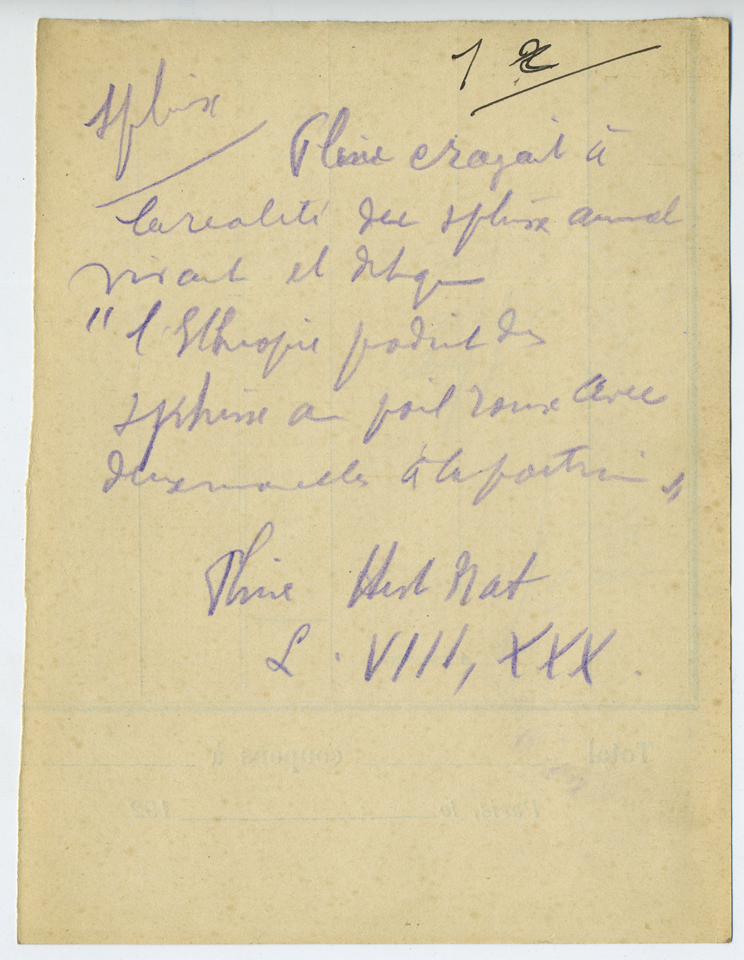 1
sphinx
Pline croyait à
la realité du sphinx animal
vivant et dit que
"l'Ethiopie produit des
sphinx au poil roux avec
deux mamelles à la poitrine"
Pline Hist Nat
L. VIII, XXX.
Total coupons à
Paris, le 192